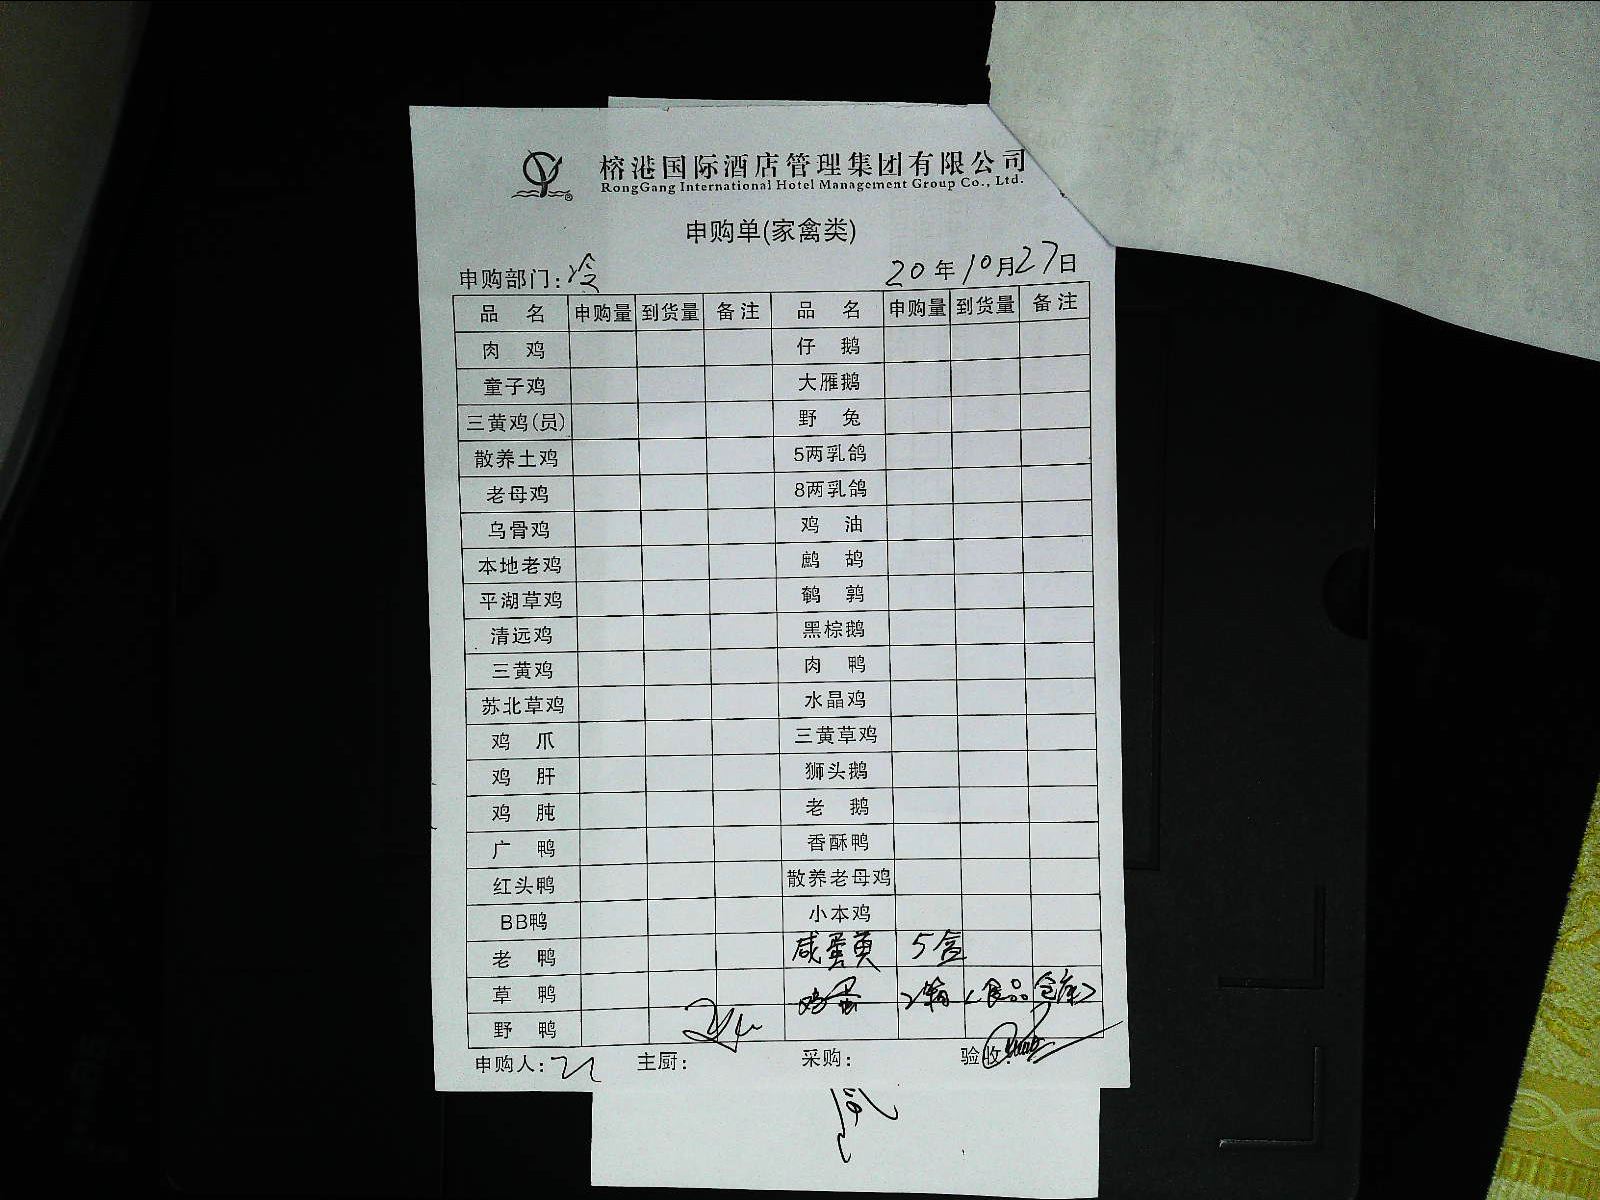 榕港国际酒店管理集团有限公司
RongGang International Hotel Management Group Co., Ltd.
申购单(家禽类)
申购部门:冷 20年10月27日
品名 申购量 到货量 备注 品名 申购量 到货量 备注
肉鸡 仔鹅
童子鸡 大雁鹅
三黄鸡(员) 野兔
散养土鸡 5两乳鸽
老母鸡 8两乳鸽
乌骨鸡 鸡油
本地老鸡 鹧鸪
平湖草鸡 鹌鹑
清远鸡 黑棕鹅
三黄鸡 肉鸭
苏北草鸡 水晶鸡
鸡爪 三黄草鸡
鸡肝 狮头鹅
鸡肫 老鹅
广鸭 香酥鸭
红头鸭 散养老母鸡
BB鸭 小本鸡
老鸭 咸蛋黄 5盒
草鸭 鸡蛋 2箱(食品仓库)
野鸭
申购人: 主厨: 采购: 验收: